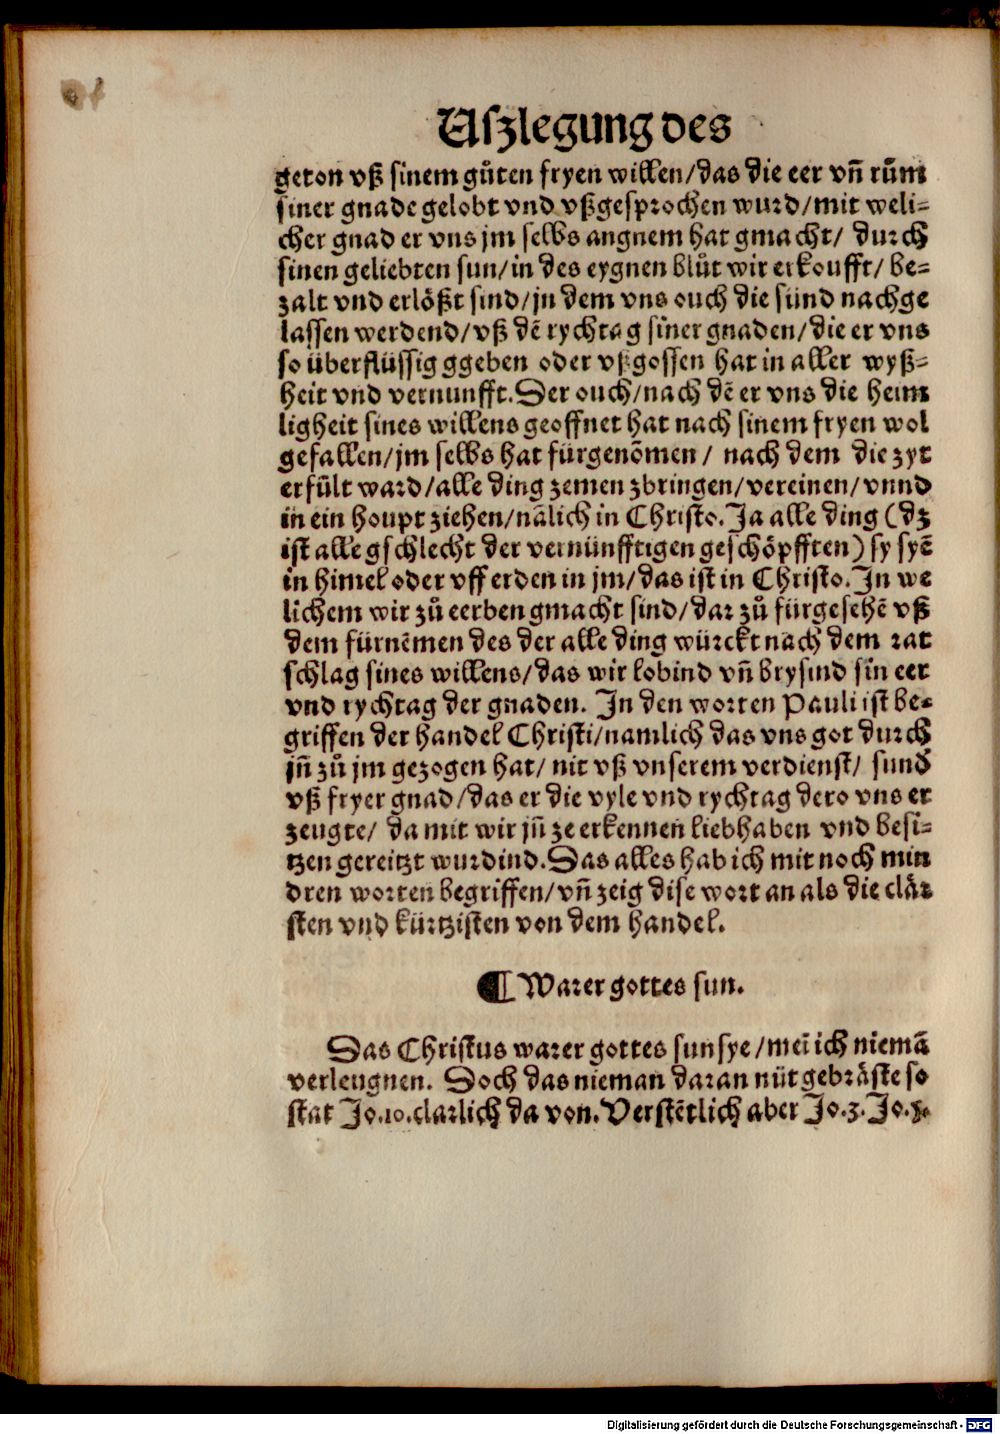 Uſzlegung des
geton vß ſinem gůten fryen willen/das die eer vn̄ rům
ſiner gnade gelobt vnd vßgeſprochen wurd/mit weli⸗
cher gnad er vns jm ſelbs angnem hat gmacht/ durch
ſinen geliebten ſun/in des eygnen blůt wir erkoufft/ be⸗
zalt vnd erlößt ſind/jn dem vns ouch die ſünd nachge
laſſen werdend/vß dē rychtag ſiner gnaden/die er vns
ſo überflüſſig ggeben oder vßgoſſen hat in aller wyß⸗
heit vnd vernunfft. Der ouch/nach dē er vns die heim
ligheit ſines willens geoffnet hat nach ſinem fryen wol
gefallen/jm ſelbs hat fürgenōmen/ nach dem die zyt
erfült ward/alle ding zemen zbringen/vereinen/vnnd
in ein houpt ziehen/nālich in Chriſto. Ja alle ding (dz
iſt alle gſchlecht der vernünfftigen geſchöpfften) ſy ſyē
in himel oder vff erden in jm/das iſt in Chriſto. In we
lichem wir zů eerben gmacht ſind/dar zů fürgeſehē vß
dem fürnēmen des der alle ding würckt nach dem rat
ſchlag ſines willens/das wir lobind vn̄ bryſind ſin eer
vnd rychtag der gnaden. In den worten Pauli iſt be⸗
griffen der handel Chriſti/namlich das vns got durch
jn̄ zů jm gezogen hat/ nit vß vnſerem verdienſt/ ſund
vß fryer gnad/das er die vyle vnd rychtag dero vns er
zeugte/ da mit wir jn̄ ze erkennen liebhaben vnd beſi⸗
tzen gereitzt wurdind. Das alles hab ich mit noch min
dren worten begriffen/vn̄ zeig diſe wort an als die clār
ſten vnd kürtziſten von dem handel.
¶ Warer gottes ſun.
Das Chriſtus warer gottes ſun ſye/mei͂ ich niemā
verleugnen. Doch das nieman daran nüt gebräſte ſo
ſtat Jo.10. clarlich da von. Verſtētlich aber Jo.3. Jo.5.
Digitalisierung gefördert durch die Deutsche Forschungsgemeinschaft - DFG